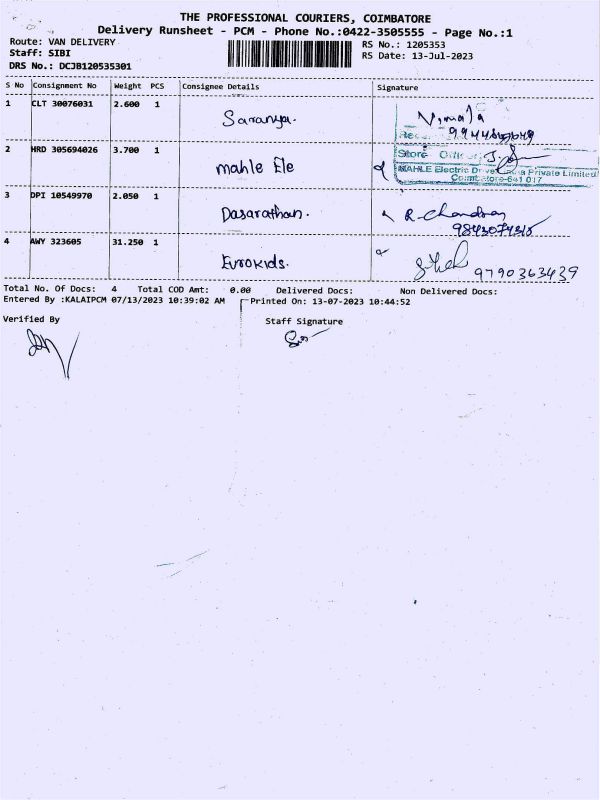 THE PROFESSIONAL COURIERS, COIMBATORE
Delivery Runsheet - PCM - Phone No.:0422-3505555 - Page No.:1
Route: VAN DELIVERY
Staff: SIBI
DRS No.: DCJB120535301
RS No.: 1205353
RS Date: 13-Jul-2023
S No Consignment No Weight PCS Consignee Details Signature
1 CLT 30076031 2.600 1 Saranya. Vimala
2 HRD 305694026 3.700 1 Mahle Ele
Store
MAHLE Electric Private Limited
Coimbatore-641 017
3 DPI 10549970 2.050 1 Dasarathan. R-Chandran
4 AWY 323605 31.250 1 Eurokids.
9790363439
Total No. Of Docs: 4 Total COD Amt: 0.00 Delivered Docs: Non Delivered Docs:
Entered By :KALAIPCM 07/13/2023 10:39:02 AM Printed On: 13-07-2023 10:44:52
Verified By Staff Signature